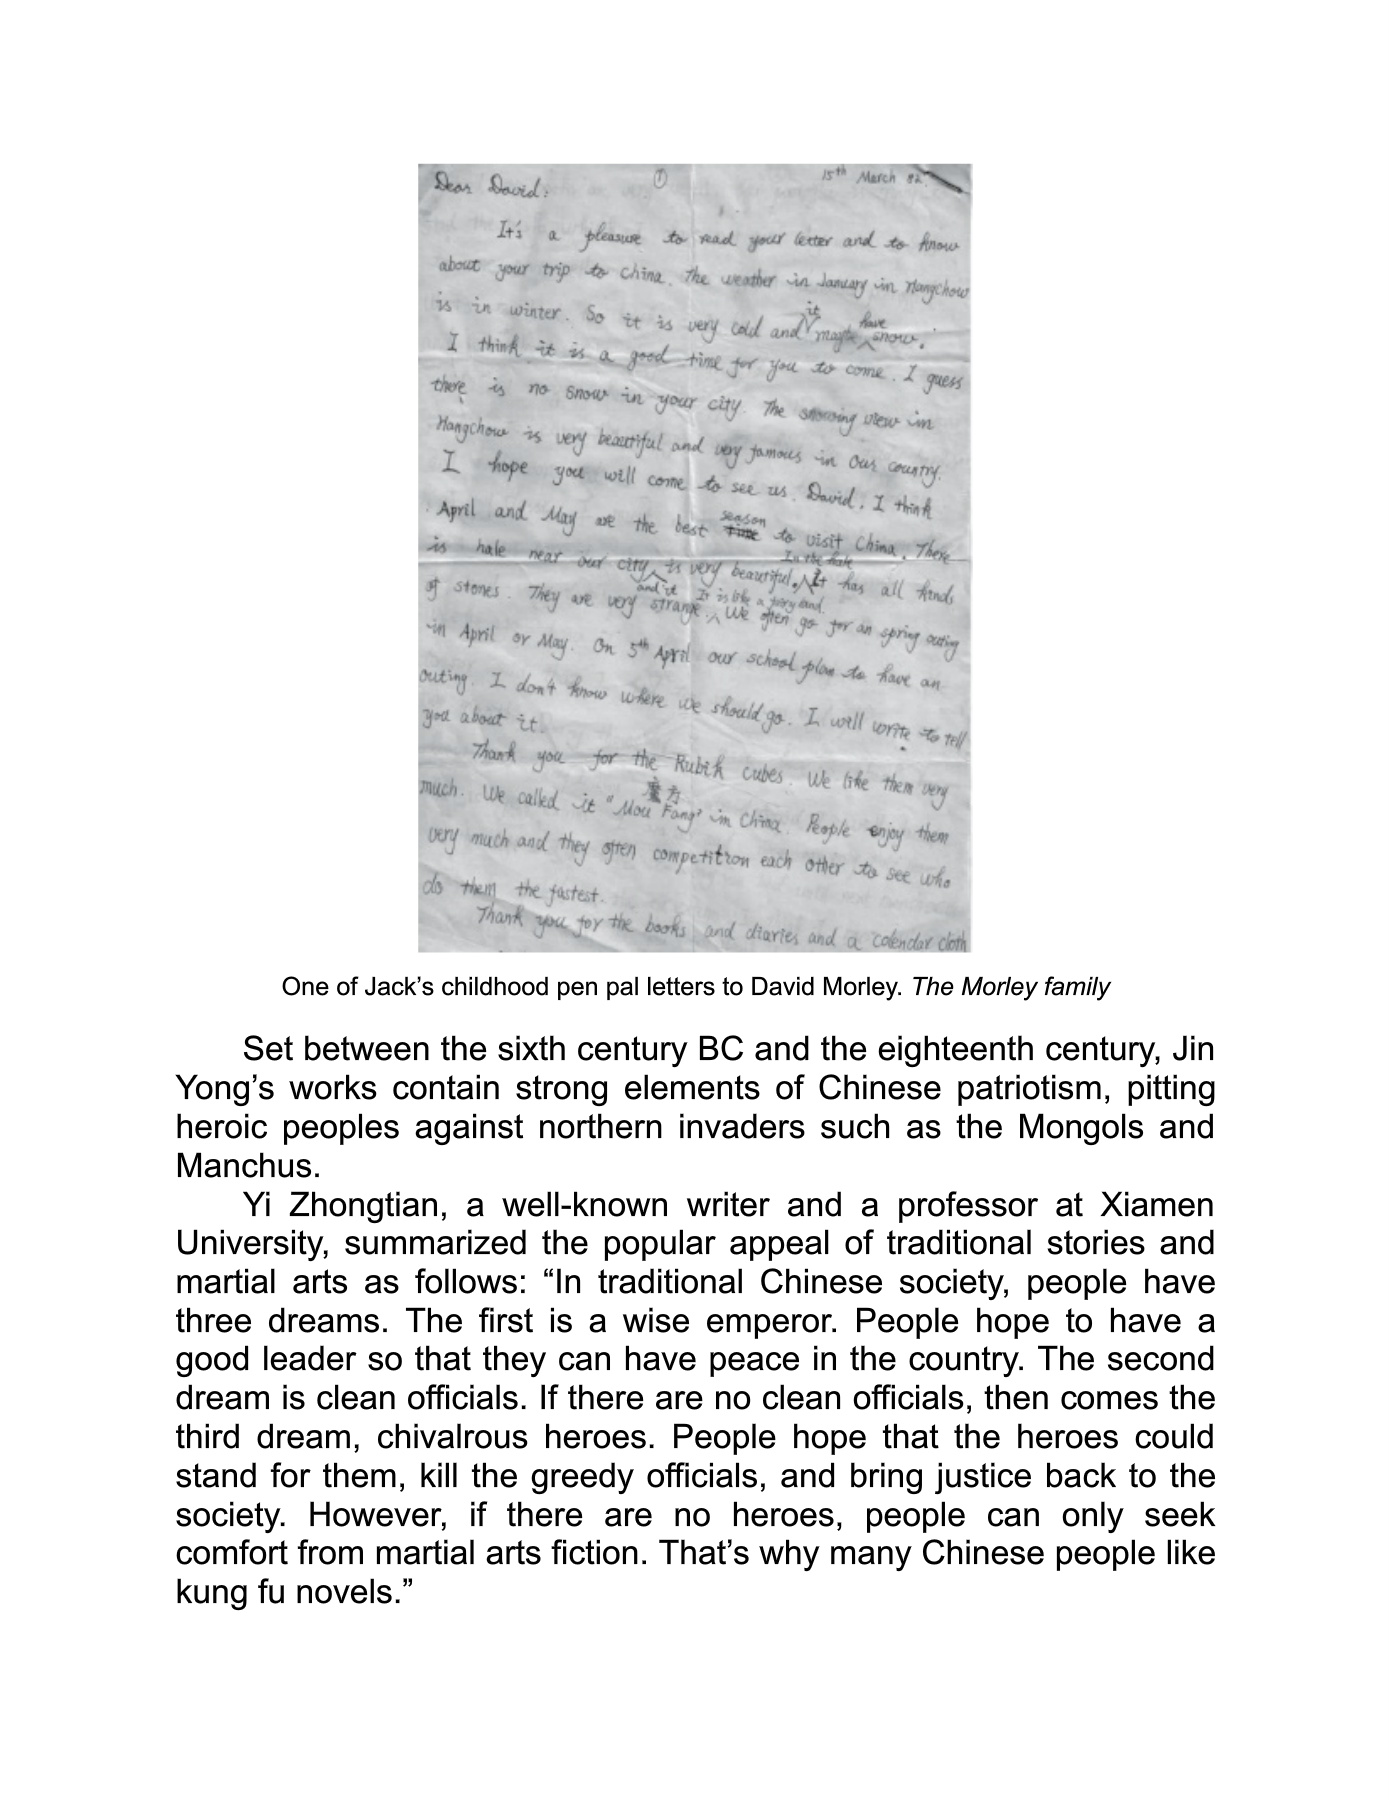 Dear David:
①
15th March 82.
It's a pleasure to read your letter and to know
about your trip to China. The weather in January in Hangchow
is in winter. So it is very cold and it maybe have snow.
I think it is a good time for you to come. I guess
there is no snow in your city. The snowing view in
Hangchow is very beautiful and very famous in our country.
I hope you will come to see us. David. I think
April and May are the best season to visit China. There
is hale near our city and it is very beautiful. In the hale It has all kinds
of stones. They are very strange. It is like a fairy land. We often go for an spring outing
in April or May. On 5th April our school plan to have an
outing. I don't know where we should go. I will write to tell
you about it.
Thank you for the Rubik cubes. We like them very
much. We called it "Mou Fang" 魔方 in China. People enjoy them
very much and they often competition each other to see who
do them the fastest.
Thank you for the books and diaries and a calendar cloth
One of Jack's childhood pen pal letters to David Morley. The Morley family
Set between the sixth century BC and the eighteenth century, Jin
Yong's works contain strong elements of Chinese patriotism, pitting
heroic peoples against northern invaders such as the Mongols and
Manchus.
Yi Zhongtian, a well-known writer and a professor at Xiamen
University, summarized the popular appeal of traditional stories and
martial arts as follows: “In traditional Chinese society, people have
three dreams. The first is a wise emperor. People hope to have a
good leader so that they can have peace in the country. The second
dream is clean officials. If there are no clean officials, then comes the
third dream, chivalrous heroes. People hope that the heroes could
stand for them, kill the greedy officials, and bring justice back to the
society. However, if there are no heroes, people can only seek
comfort from martial arts fiction. That’s why many Chinese people like
kung fu novels.”